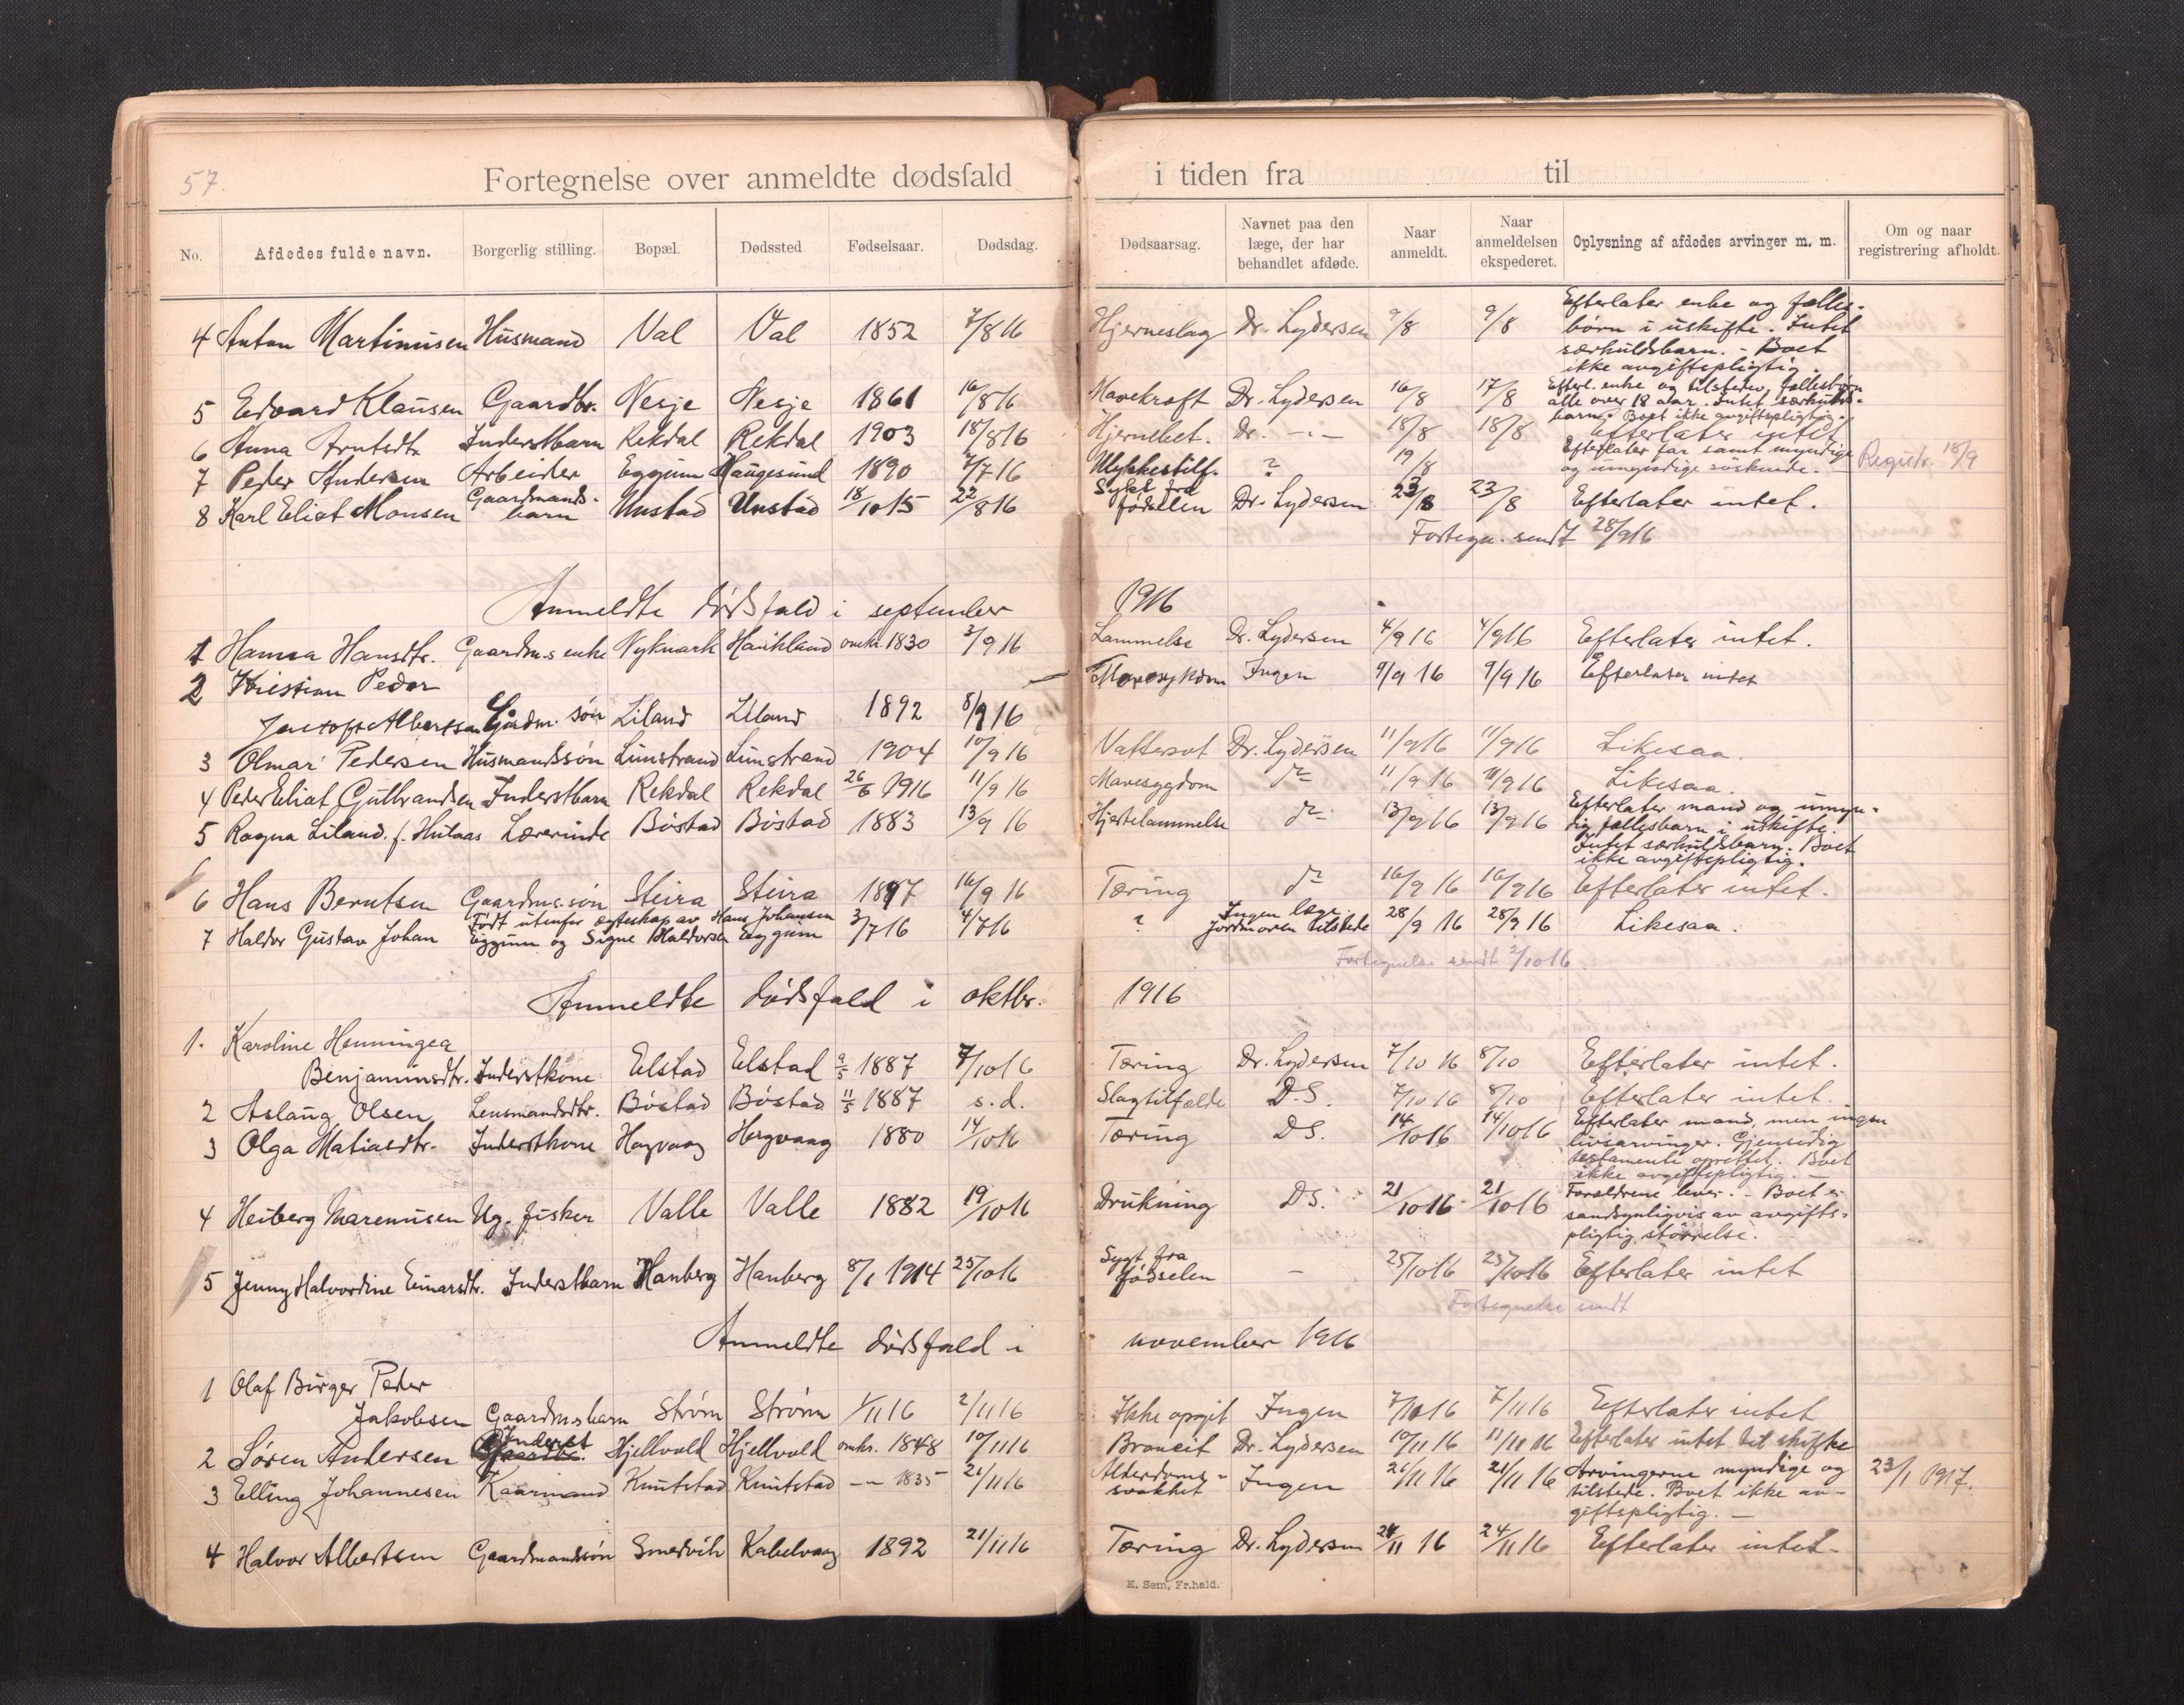 57.
Fortegnelse over anmeldte dødsfald i tiden fra til
No. Afdødes fulde navn. Borgerlig stilling. Bopæl. Dødssted Fødselsaar. Dødsdag. Dødsaarsag. Navnet paa den læge, der har behandlet afdøde. Naar anmeldt. Naar anmeldelsen ekspederet. Oplysning af afdødes arvinger m. m. Om og naar registrering afholdt.
4 Anton Martinusen Husmand Val Val 1852 7/8 16 Hjerneslag Dr. Lydersen 9/8 9/8 Efterlater enke og fælles-
børn i uskifte. Intet
særkuldsbarn. - Boet
ikke avgiftspligtig.
5 Edvard Klausen Gaardbr. Nesje Nesje 1861 16/8 16 Mavekræft Dr. Lydersen 16/8 17/8 Efterl. enke og tilstedev. fællesbørn
alle over 18 aar. Intet særkulds-
barn. Boet ikke avgiftspligtig.
6 Anna Arntsdtr Inderstbarn Rekdal Rekdal 1903 18/8 16 Hjernebet. Dr. -"- 18/8 18/8 Efterlater intet
7 Peder Andersen Arbeider Eggum Haugesund 1890 7/7 16 Ulykkestilf. ? 19/8 Efterlater far samt myndige
og umyndige søskende. Registr. 18/9
8 Karl Eliot Monsen Gaardmands-
barn Unstad Unstad 18/10 15 22/8 16 Sykt fra
fødselen Dr. Lydersen 23/8 23/8 Efterlater intet.
Fortegn. sendt 28/9 16
Anmeldte dødsfald i september 1916
1 Hanna Hansdtr. Gaardm.s enke Nykmark Haukland omkr. 1830 3/9 16 Lammelse Dr. Lydersen 4/9 16 4/9 16 Efterlater intet.
2 Kristian Peder
Albertsen Gaardm. søn Liland Liland 1892 8/9 16 Mavesykdom Ingen 9/9 16 9/9 16 Efterlater intet
3 Olmar Pedersen Husmandssøn Limstrand Limstrand 1904 10/9 16 Vattersot Dr. Lydersen 11/9 16 11/9 16 Likesaa.
4 Peder Eliot Gulbrandsen Inderstbarn Rekdal Rekdal 26/6 1916 11/9 16 Mavesygdom do 11/9 16 11/9 16 Likesaa.
5 Ragna Liland. f. Hulaas Lærerinde Bøstad Bøstad 1883 13/9 16 Hjertelammelse do 13/9 16 13/9 16 Efterlater mand og umyn-
dig fællesbarn i uskifte.
Intet særkuldsbarn. Boet
ikke avgiftspligtig.
6 Hans Berntsen Gaardm.s søn Steira Steira 1897 16/9 16 Tæring do 16/9 16 16/9 16 Efterlater intet.
7 Haldor Gustav Johan Født utenfor egteskap av Hans Johansen
Eggum og Signe Haldorsen Eggum 3/7 16 4/7 16 ? Ingen læge.
Jordmoren tilstede 28/9 16 28/9 16 Likesaa.
Fortegnelse sendt 2/10 16
Anmeldte dødsfald i oktbr. 1916
1. Karoline Henningea
Benjaminsdtr. Inderstkone Elstad Elstad 9/5 1887 7/10 16 Tæring Dr. Lydersen 7/10 16 8/10 Efterlater intet.
2 Aslaug Olsen Lensmandsdtr. Bøstad Bøstad 11/5 1887 s.d. Slagtilfælde D.S. 7/10 16 8/10 Efterlater intet.
3 Olga Matiasdtr. Inderstkone Hagvaag Hagvaag 1880 14/10 16 Tæring D.S. 14/10 16 14/10 16 Efterlater mand, men ingen
livsarvinger. Gjensidig
testamente oprettet. Boet
ikke avgiftspligtig. -
4 Heiberg Marenusen Ug. fisker Valle Valle 1882 19/10 16 Drukning D.S. 21/10 16 21/10 16 Forældrene lever. - Boet er
sandsynligvis av avgifts-
pligtig størrelse.
5 Jenny Halvordine Einarsdtr. Inderstbarn Hanberg Hanberg 8/1 1914 25/10 16 Sygt fra
fødselen - 25/10 16 25/10 16 Efterlater intet
Fortegnelse sendt
Anmeldte dødsfald i november 1916
1 Olaf Birger Peder
Jakobsen Gaardm.s barn Strøm Strøm 1/11 16 2/11 16 Ikke opgit Ingen 7/11 16 7/11 16 Efterlater intet
2 Søren Andersen Inderst Hjellvold Hjellvold omkr. 1848 10/11 16 Broncit Dr. Lydersen 10/11 16 11/11 16 Efterlater intet til skifte
3 Elling Johannesen Kaarmand Knutstad Knutstad -"- 1835 21/11 16 Alderdoms-
svakhet Ingen 21/11 16 21/11 16 Arvingerne myndige og
tilstede. Boet ikke av-
giftspligtig. - 23/1 1917.
4 Halvor Albertsen Gaardmandssøn Smedvik Kabelvaag 1892 21/11 16 Tæring Dr. Lydersen 24/11 16 24/11 16 Efterlater intet.
E. Sem, Fr.hald.